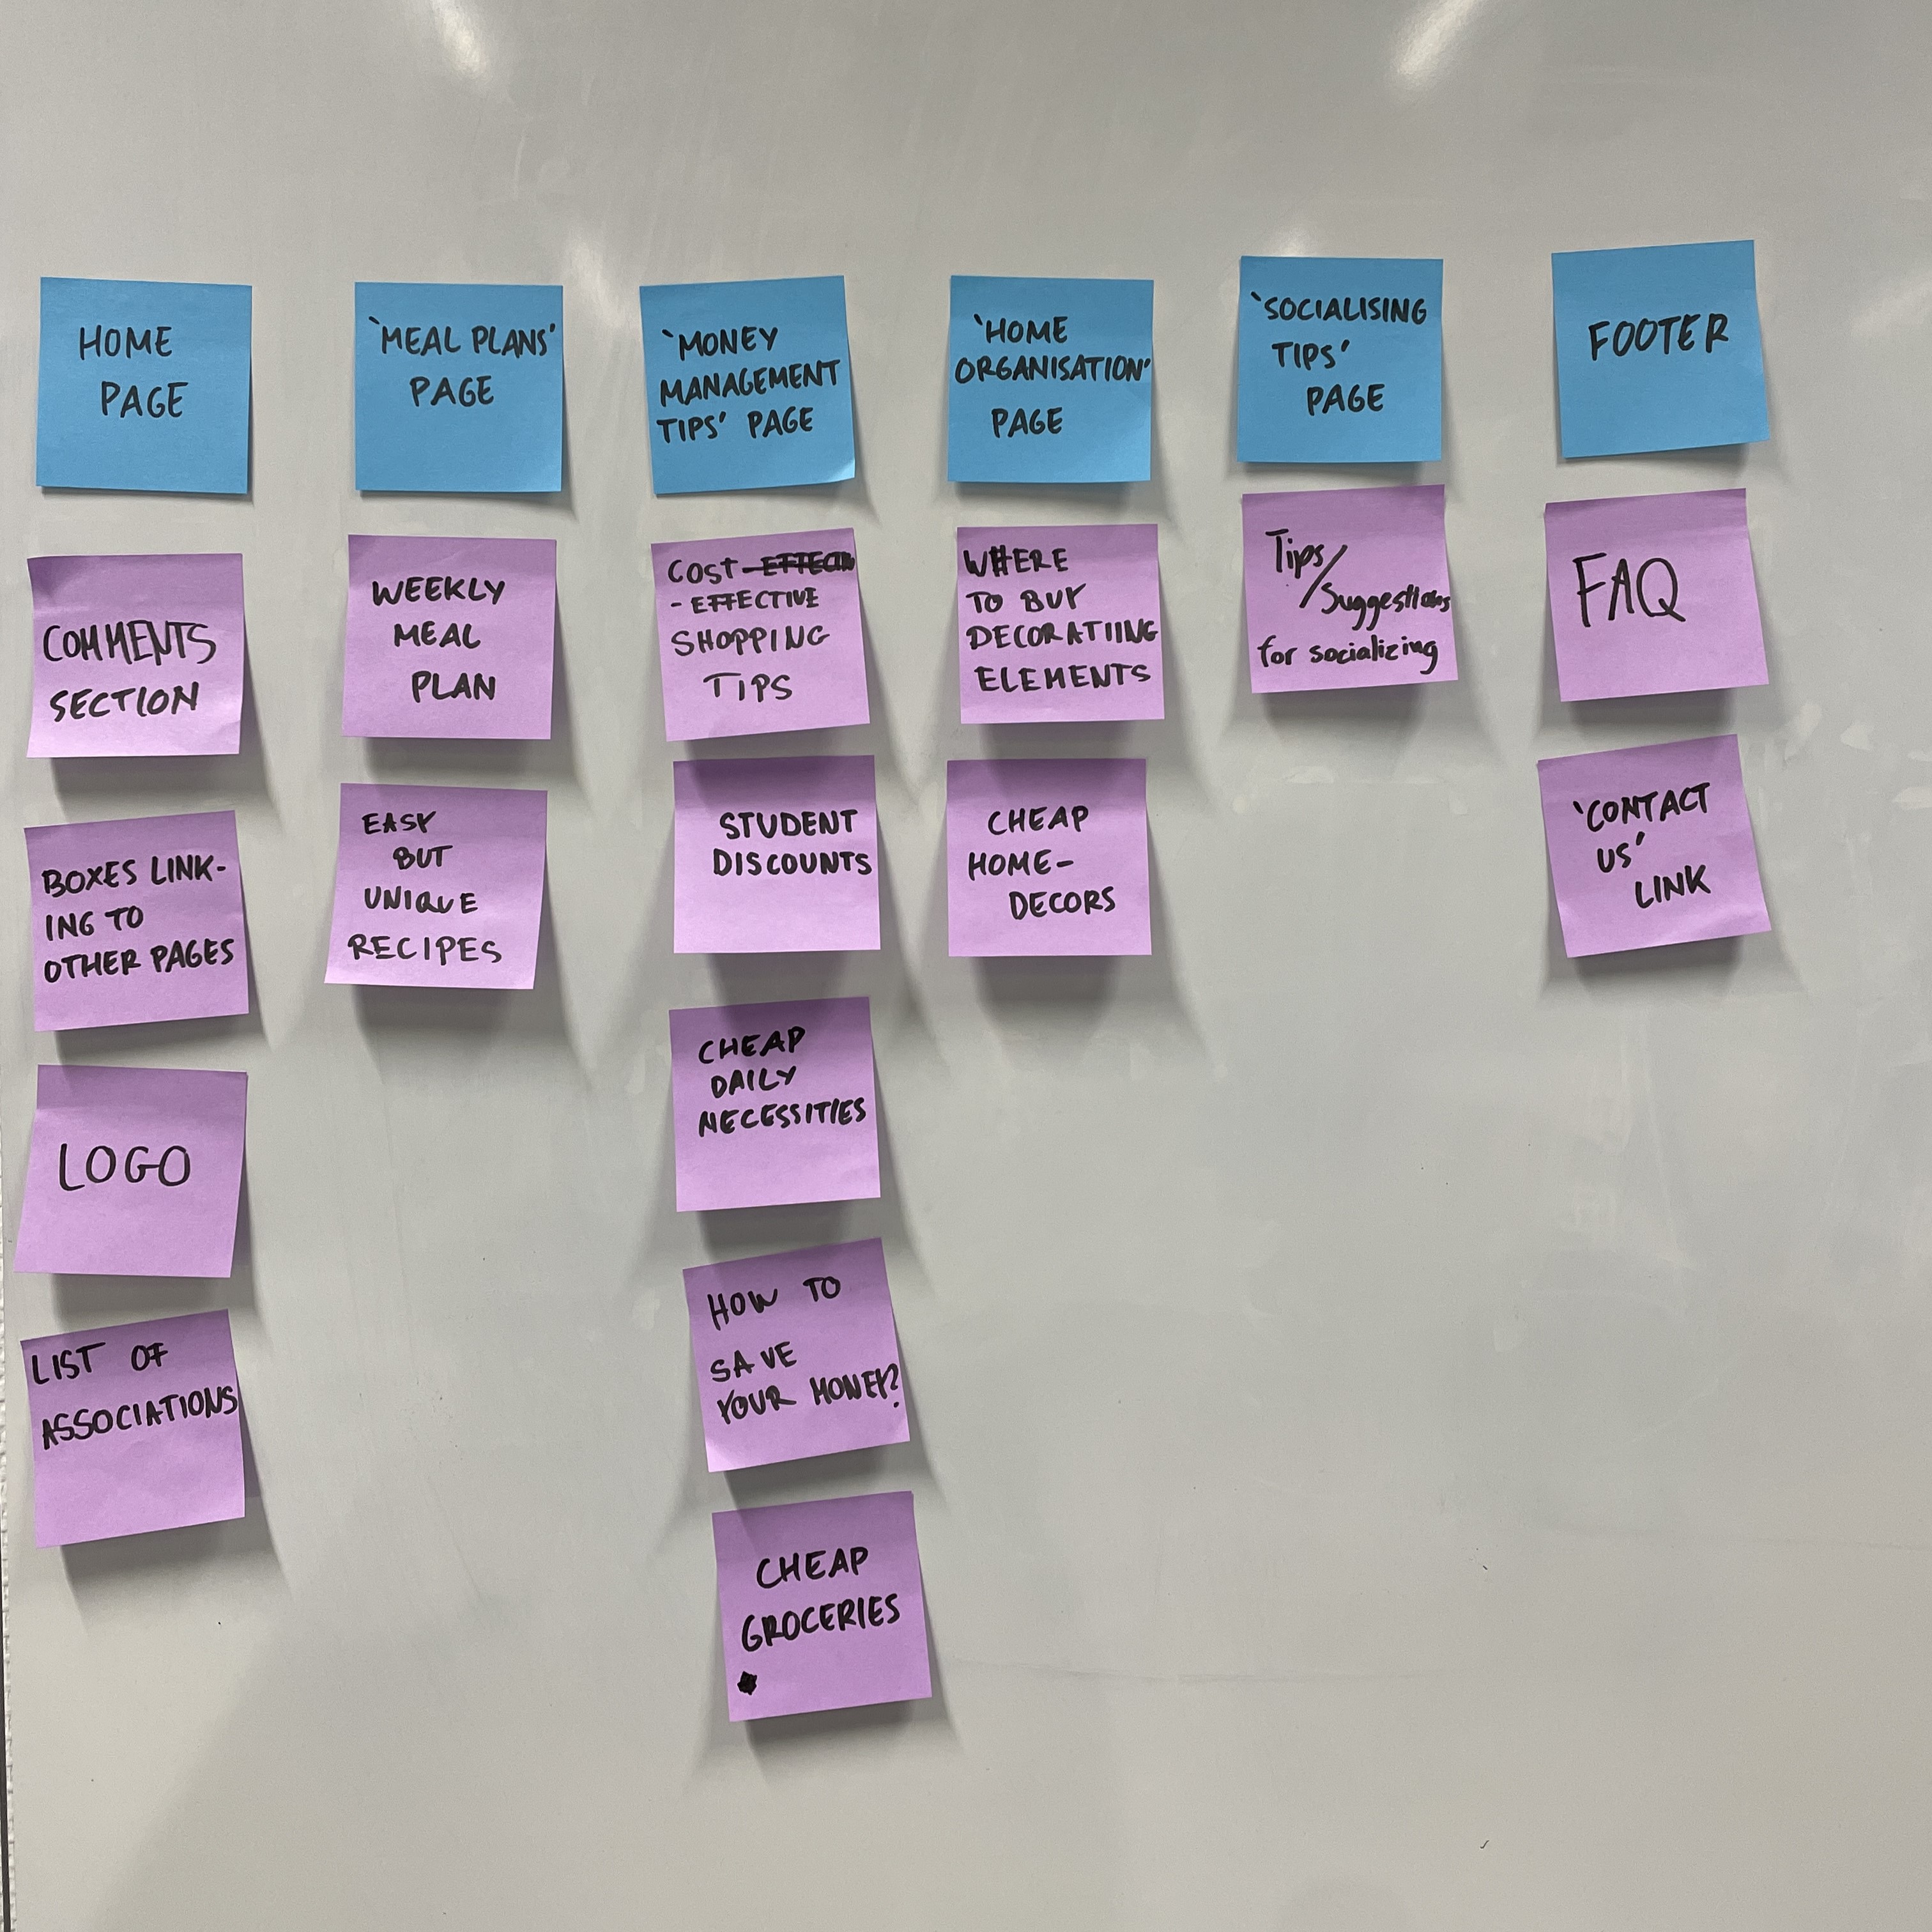 HOME
PAGE
COMMENTS
SECTION
BOXES LINK-
ING TO
OTHER PAGES
LOGO
LIST OF
ASSOCIATIONS
'MEAL PLANS'
PAGE
WEEKLY
MEAL
PLAN
EASY
BUT
UNIQUE
RECIPES
'MONEY
MANAGEMENT
TIPS' PAGE
COST
-EFFECTIVE
SHOPPING
TIPS
STUDENT
DISCOUNTS
CHEAP
DAILY
NECESSITIES
HOW TO
SAVE
YOUR MONEY?
CHEAP
GROCERIES
'HOME
ORGANISATION'
PAGE
WHERE
TO BUY
DECORATIING
ELEMENTS
CHEAP
HOME-
DECORS
'SOCIALISING
TIPS'
PAGE
Tips/
Suggestions
for socializing
FOOTER
FAQ
'CONTACT
US'
LINK